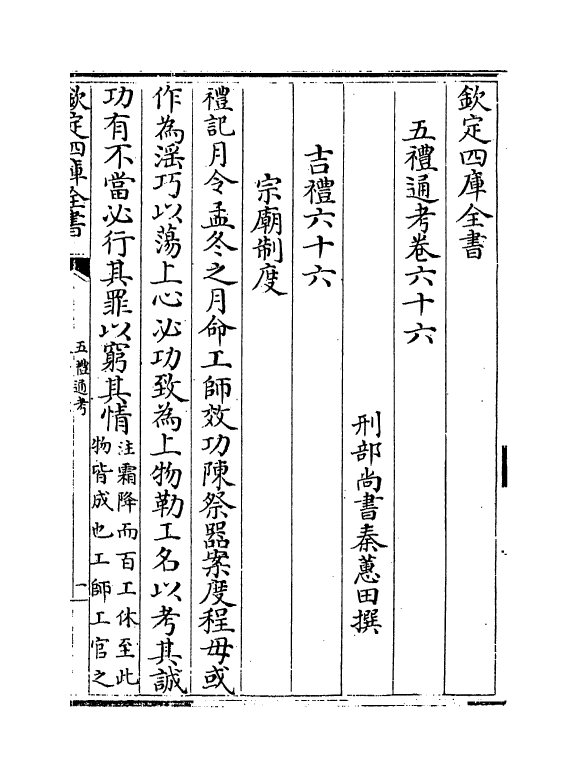 欽定四庫全書
五禮通考卷六十六
刑部尚書秦蕙田撰
吉禮六十六
宗廟制度
禮記月令孟冬之月命工師效功陳祭器案度程毋或
作為淫巧以蕩上心必功致為上物勒工名以考其誠
功有不當必行其罪以窮其情注霜降而百工休至此
物皆成也工師工官之
欽定四庫全書
五禮通考
一